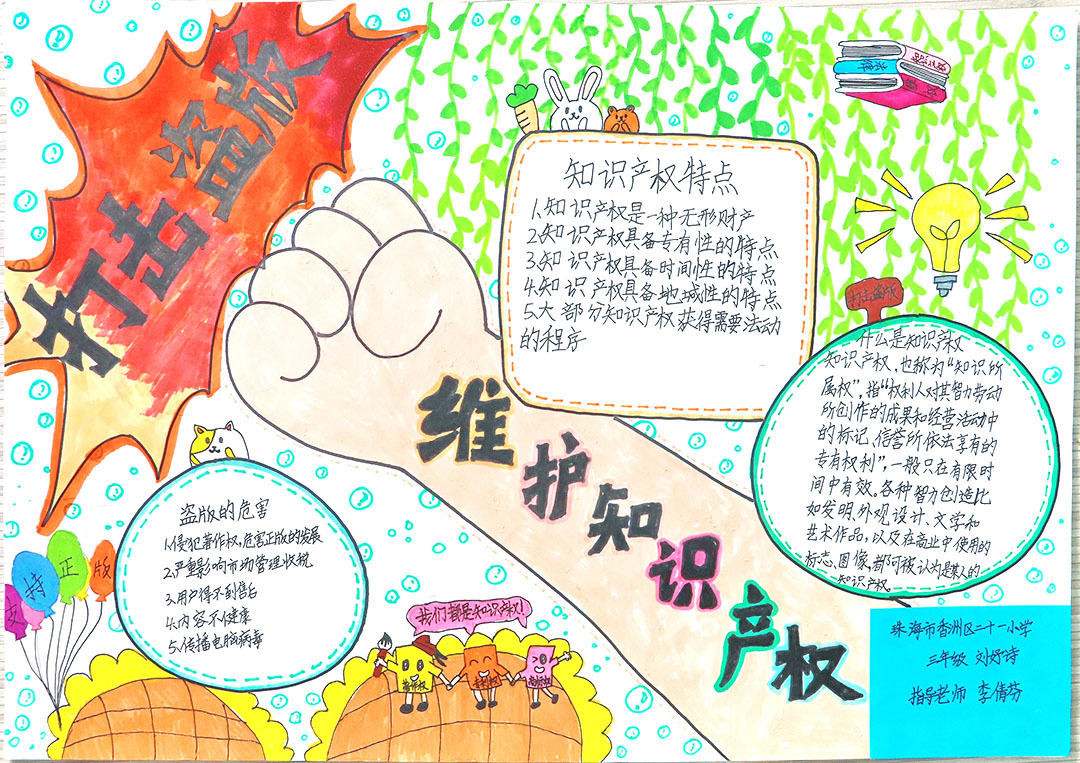 打击盗版
知识产权特点
1.知识产权是一种无形财产
2.知识产权具备专有性的特点
3.知识产权具备时间性的特点
4.知识产权具备地域性的特点
5.大部分知识产权获得需要法动
的程序
法律
打击盗版
什么是知识产权
知识产权,也称为“知识所
属权”,指“权利人对其智力劳动
所创作的成果和经营活动中
的标记、信誉所依法享有的
专有权利”,一般只在有限时
间中有效。各种智力创造比
如发明、外观设计、文学和
艺术作品,以及在商业中使用的
标志、图像,都可被认为是某人的
知识产权
维护知识产权
盗版的危害
1.侵犯著作权,危害正版的发展
2.严重影响市场管理收税
3.用户得不到售后
4.内容不健康
5.传播电脑病毒
支持正版
我们都是知识产权!
著作权
商标权
珠海市香洲区二十一小学
三年级 刘妤诗
指导老师 李倩芬